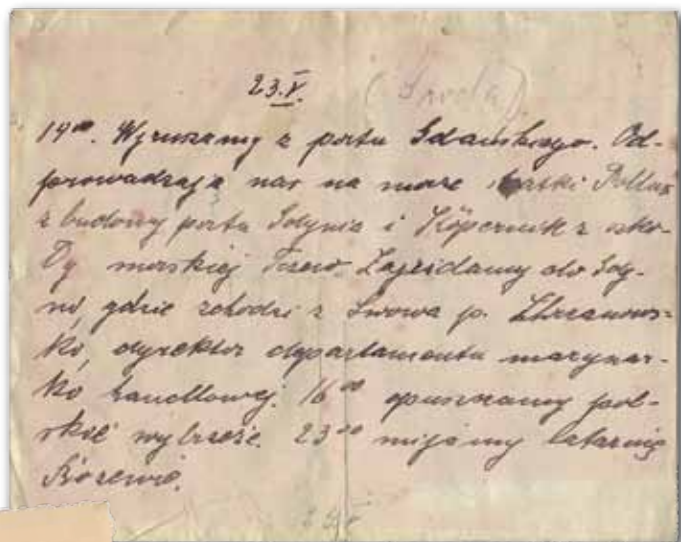 23.V. (Środa).
14⁰⁰. Wyruszamy z portu Gdańskiego. Od-
prowadzają nas na morze statki Pollux
z budowy portu Gdynia i Kopernik z szko-
ły morskiej Tczew. Zajeżdżamy do Gdy-
ni, gdzie schodzi z Lwowa p. Chrzanows-
ki, dyrektor departamentu marynar-
ki handlowej. 16⁰⁰ opuszczamy pol-
skie wybrzeże. 23⁰⁰ mijamy latarnię
Rozewie.